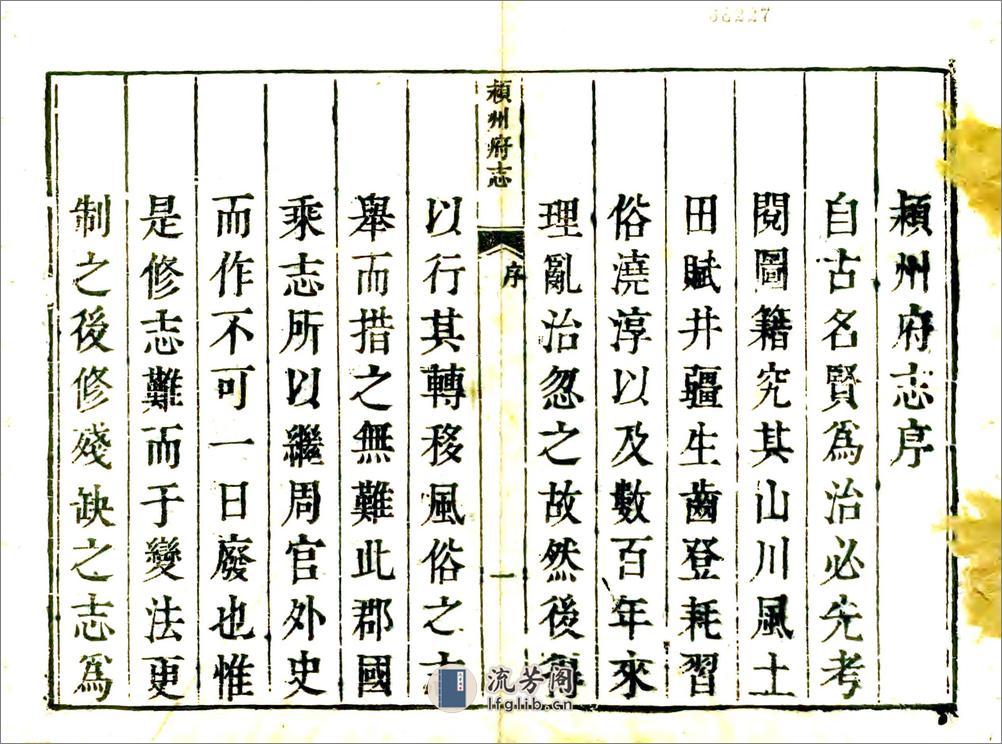 68227
潁州府志序
自古名賢爲治必先考
閱圖籍究其山川風土
田賦井疆生齒登耗習
俗澆淳以及數百年來
理亂治忽之故然後得
潁州府志
序
一
以行其轉移風俗之
舉而措之無難此郡國
乘志所以繼周官外史
而作不可一日廢也惟
是修志難而于變法更
制之後修殘缺之志爲
流芳阁
lfglib.cn